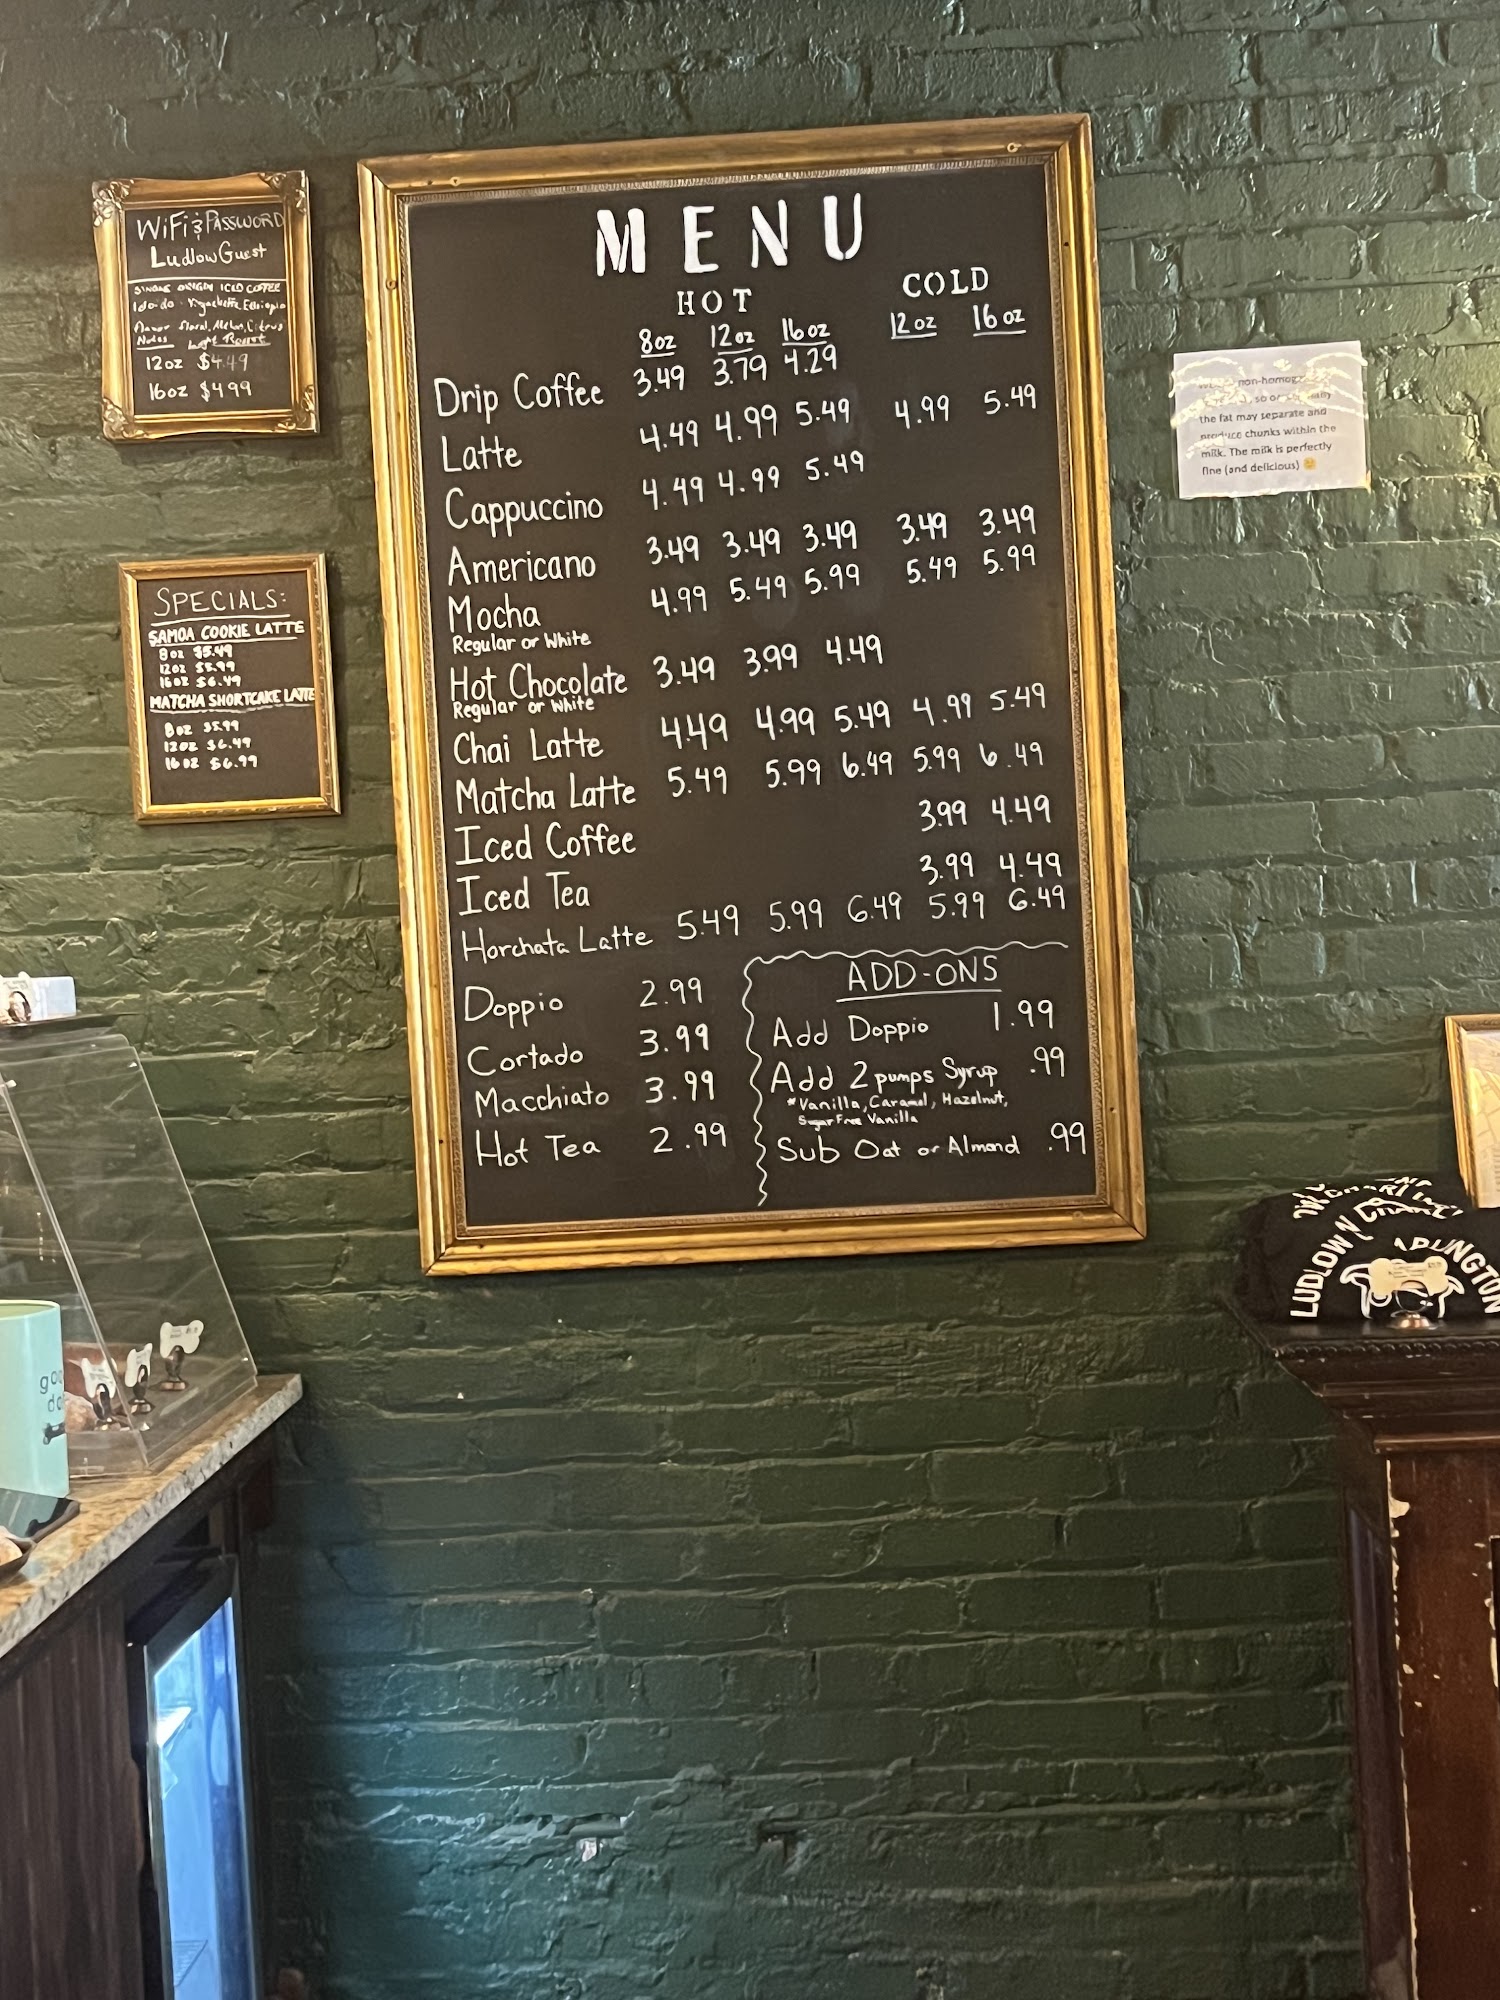 WiFi & PASSWORD
LudlowGuest
SINGLE ORIGIN ICED COFFEE
Idido - Yirgacheffe, Ethiopia
Flavor Floral, Melon, Citrus
Notes Light Roast
12oz $4.49
16oz $4.99
SPECIALS:
SAMOA COOKIE LATTE
8oz $5.49
12oz $5.99
16oz $6.49
MATCHA SHORTCAKE LATTE
8oz $5.99
12oz $6.49
16oz $6.99
MENU
HOT COLD
8oz 12oz 16oz 12oz 16oz
Drip Coffee 3.49 3.79 4.29
Latte 4.49 4.99 5.49 4.99 5.49
Cappuccino 4.49 4.99 5.49
Americano 3.49 3.49 3.49 3.49 3.49
Mocha 4.99 5.49 5.99 5.49 5.99
Regular or White
Hot Chocolate 3.49 3.99 4.49
Regular or White
Chai Latte 4.49 4.99 5.49 4.99 5.49
Matcha Latte 5.49 5.99 6.49 5.99 6.49
Iced Coffee 3.99 4.49
Iced Tea 3.99 4.49
Horchata Latte 5.49 5.99 6.49 5.99 6.49
Doppio 2.99
Cortado 3.99
Macchiato 3.99
Hot Tea 2.99
ADD-ONS
Add Doppio 1.99
Add 2 pumps Syrup .99
*Vanilla, Caramel, Hazelnut,
Sugar Free Vanilla
Sub Oat or Almond .99
non-homog
so
the fat may separate and
produce chunks within the
milk. The milk is perfectly
fine (and delicious) 😊
LUDLOW